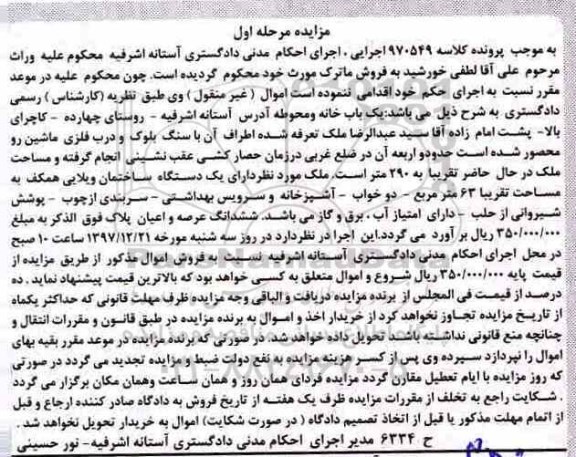 مزایده مرحله اول
به موجب پرونده کلاسه ۹۷۰۵۴۹ اجرایی ، اجرای احکام مدنی دادگستری آستانه اشرفیه محکوم علیه وراث
مرحوم علی آقا لطفی خورشید به فروش ماترک مورث خود محکوم گردیده است. چون محکوم علیه در موعد
مقرر نسبت به اجرای حکم خود اقدامی ننموده است اموال ( غیر منقول ) وی طبق نظریه (کارشناس ) رسمی
دادگستری به شرح ذیل می باشد: یک باب خانه ومحوطه آدرس آستانه اشرفیه - روستای چهارده - کاچرای
بالا- پشت امام زاده آقا سید عبدالرضا ملک تعرفه شده اطراف آن با سنگ بلوک و درب فلزی ماشین رو
محصور شده است حدودو اربعه آن در ضلع غربی درزمان حصار کشی عقب نشینی انجام گرفته و مساحت
ملک در حال حاضر تقریبا به ۲۹۰ متر است. ملک مورد نظردارای یک دستگاه ساختمان ویلایی همکف به
مساحت تقریبا ۶۳ متر مربع - دو خواب - آشپزخانه و سرویس بهداشتی - سربندی ازچوب - پوشش
شیروانی از حلب - دارای امتیاز آب ، برق و گاز می باشد. ششدانگ عرصه و اعیان پلاک فوق الذکر به مبلغ
۳۵۰/۰۰۰/۰۰۰ ریال بر آورد می گردد.این اجرا در نظردارد در روز سه شنبه مورخه ۱۳۹۷/۱۲/۲۱ ساعت ۱۰ صبح
در محل اجرای احکام مدنی دادگستری آستانه اشرفیه نسبت به فروش اموال مذکور از طریق مزایده از
قیمت پایه ۳۵۰/۰۰۰/۰۰۰ ریال شروع و اموال متعلق به کسی خواهد بود که بالاترین قیمت پیشنهاد نماید . ده
درصد از قیمت فی المجلس از برنده مزایده دریافت و الباقی وجه مزایده ظرف مهلت قانونی که حداکثر یکماه
از تاریخ مزایده تجاوز نخواهد کرد از خریدار اخذ و اموال به برنده مزایده در طبق قانون و مقررات انتقال و
چنانچه منع قانونی نداشته باشد تحویل داده خواهد شد. در صورتی که برنده مزایده در موعد مقرر بقیه بهای
اموال را نپردازد سپرده وی پس از کسر هزینه مزایده به نفع دولت ضبط و مزایده تجدید می گردد در صورتی
که روز مزایده با ایام تعطیل مقارن گردد مزایده فردای همان روز و همان ساعت وهمان مکان برگزار می گردد
. شکایت راجع به تخلف از مقررات مزایده ظرف یک هفته از تاریخ فروش به دادگاه صادر کننده ارجاع و قبل
از اتمام مهلت مذکور یا قبل از اتخاذ تصمیم دادگاه ( در صورت شکایت) اموال به خریدار تحویل نخواهد شد .
ح ۶۳۳۴ مدیر اجرای احکام مدنی دادگستری آستانه اشرفیه- نور حسینی